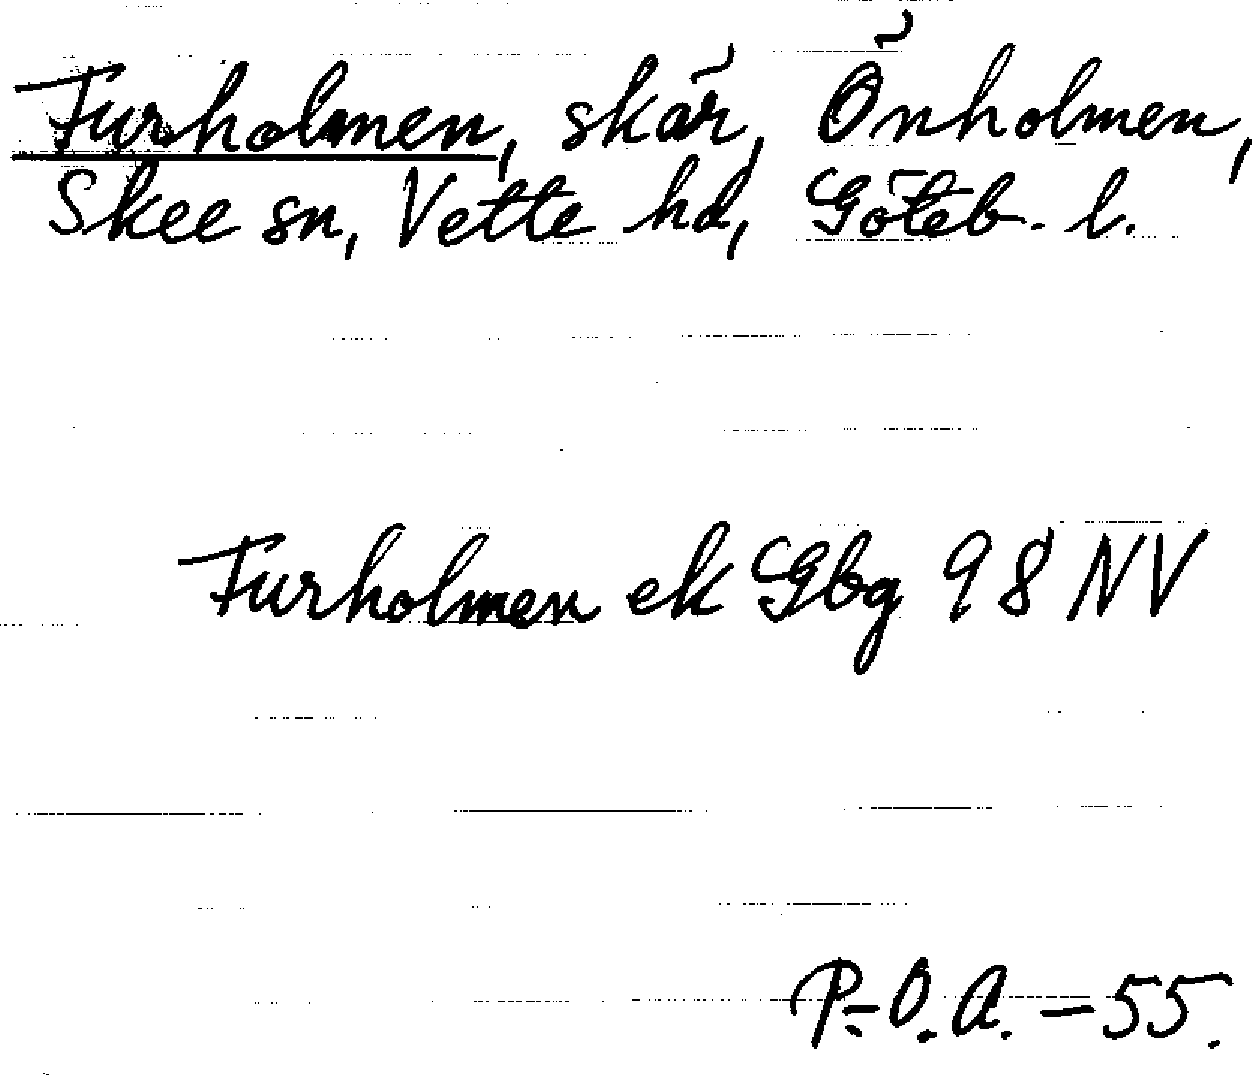 Furholmen, skär, Önholmen,
Skee sn, Vette hd, Göteb. l.
Furholmen ek Gbg 98 NV
P.-O. A. -55.